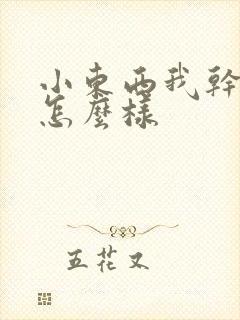 小東西我幹
怎麼樣
五花又